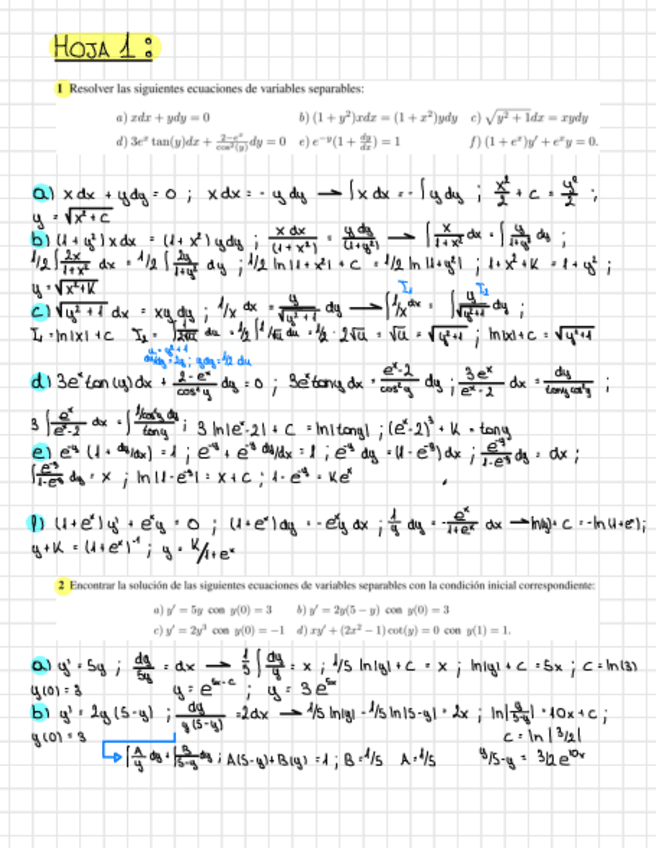 HOJA 1:
1 Resolver las siguientes ecuaciones de variables separables:
a) xdx + ydy = 0 b) (1 + y²)xdx = (1 + x²)ydy c) √(y² + 1)dx = xydy
d) 3eˣ tan(y)dx + (2−eˣ)/cos²(y) dy = 0 e) e⁻ʸ(1 + dy/dx) = 1 f) (1 + eˣ)y' + eˣy = 0.
a) x dx + y dy = 0 ; x dx = - y dy → ∫x dx = -∫y dy ; x²/2 + c = y²/2 ;
y = √(x²+c)
b) (1 + y²) x dx = (1 + x²) y dy ; x dx/(1+x²) = y dy/(1+y²) → ∫x/(1+x²) dx = ∫y/(1+y²) dy ;
1/2 ∫2x/(1+x²) dx = 1/2 ∫2y/(1+y²) dy ; 1/2 ln|1+x²| + c = 1/2 ln|1+y²| ; 1+x²+K = 1+y² ;
y = √(x²+K)
I₁ I₂
c) √(y²+1) dx = xy dy ; 1/x dx = y/√(y²+1) dy → ∫1/x dx = ∫y/√(y²+1) dy ;
I₁ = ln|x| + c I₂ = ∫1/2√u du = 1/2 ∫1/√u du = 1/2 · 2√u = √u = √(y²+1) ; ln|x| + c = √(y²+1)
u = y²+1
du/dy = 2y ; y dy = 1/2 du
d) 3eˣ tan (y) dx + (2-eˣ)/cos²y dy = 0 ; 3eˣ tany dx = (eˣ-2)/cos²y dy ; 3eˣ/(eˣ-2) dx = dy/(tany cos²y) ;
3 ∫eˣ/(eˣ-2) dx = ∫(1/cos²y dy)/tany ; 3 ln|eˣ-2| + c = ln|tany| ; (eˣ-2)³ + K = tany
e) e⁻ʸ (1 + dy/dx) = 1 ; e⁻ʸ + e⁻ʸ dy/dx = 1 ; e⁻ʸ dy = (1-e⁻ʸ) dx ; e⁻ʸ/(1-e⁻ʸ) dy = dx ;
∫e⁻ʸ/(1-e⁻ʸ) dy = x ; ln|1-e⁻ʸ| = x + c ; 1-e⁻ʸ = Keˣ
f) (1+eˣ) y' + eˣy = 0 ; (1+eˣ) dy = -eˣy dx ; 1/y dy = -eˣ/(1+eˣ) dx → ln|y| + c = -ln(1+eˣ) ;
y + K = (1+eˣ)⁻¹ ; y = K/1+eˣ
2 Encontrar la solución de las siguientes ecuaciones de variables separables con la condición inicial correspondiente:
a) y' = 5y con y(0) = 3 b) y' = 2y(5 − y) con y(0) = 3
c) y' = 2y³ con y(0) = −1 d) xy' + (2x² − 1) cot(y) = 0 con y(1) = 1.
a) y' = 5y ; dy/5y = dx → 1/5 ∫dy/y = x ; 1/5 ln|y| + c = x ; ln|y| + c = 5x ; c = ln(3)
y(0) = 3 y = e⁵ˣ⁻ᶜ ; y = 3e⁵ˣ
b) y' = 2y (5-y) ; dy/y(5-y) = 2dx → 1/5 ln|y| - 1/5 ln|5-y| = 2x ; ln|y/5-y| = 10x + c ;
y(0) = 3 c = ln|3/2|
∫A/y dy + ∫B/5-y dy ; A(5-y) + B(y) = 1 ; B = 1/5 A = 1/5 y/5-y = 3/2 e¹⁰ˣ